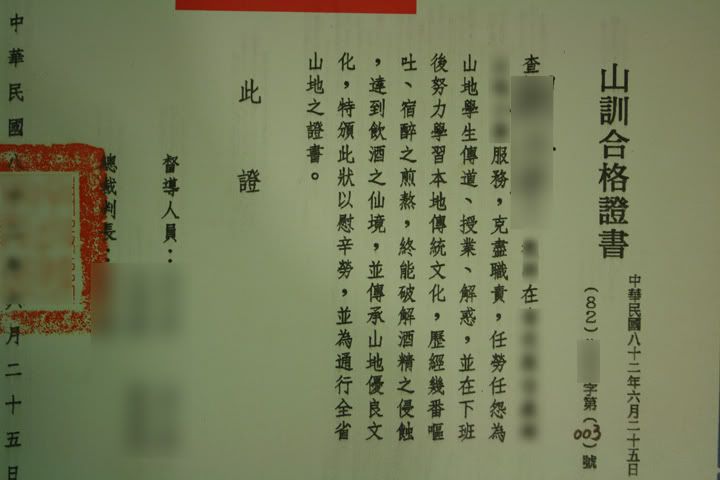 山訓合格證書
中華民國八十二年六月二十五日
(82) 字第(003)號
查 在
服務，克盡職責，任勞任怨為
山地學生傳道、授業、解惑，並在下班
後努力學習本地傳統文化，歷經幾番嘔
吐、宿醉之煎熬，終能破解酒精之侵蝕
，達到飲酒之仙境，並傳承山地優良文
化，特頒此狀以慰辛勞，並為通行全省
山地之證書。
此證
督導人員：
總裁判長：
中華民國 二年六月二十五日